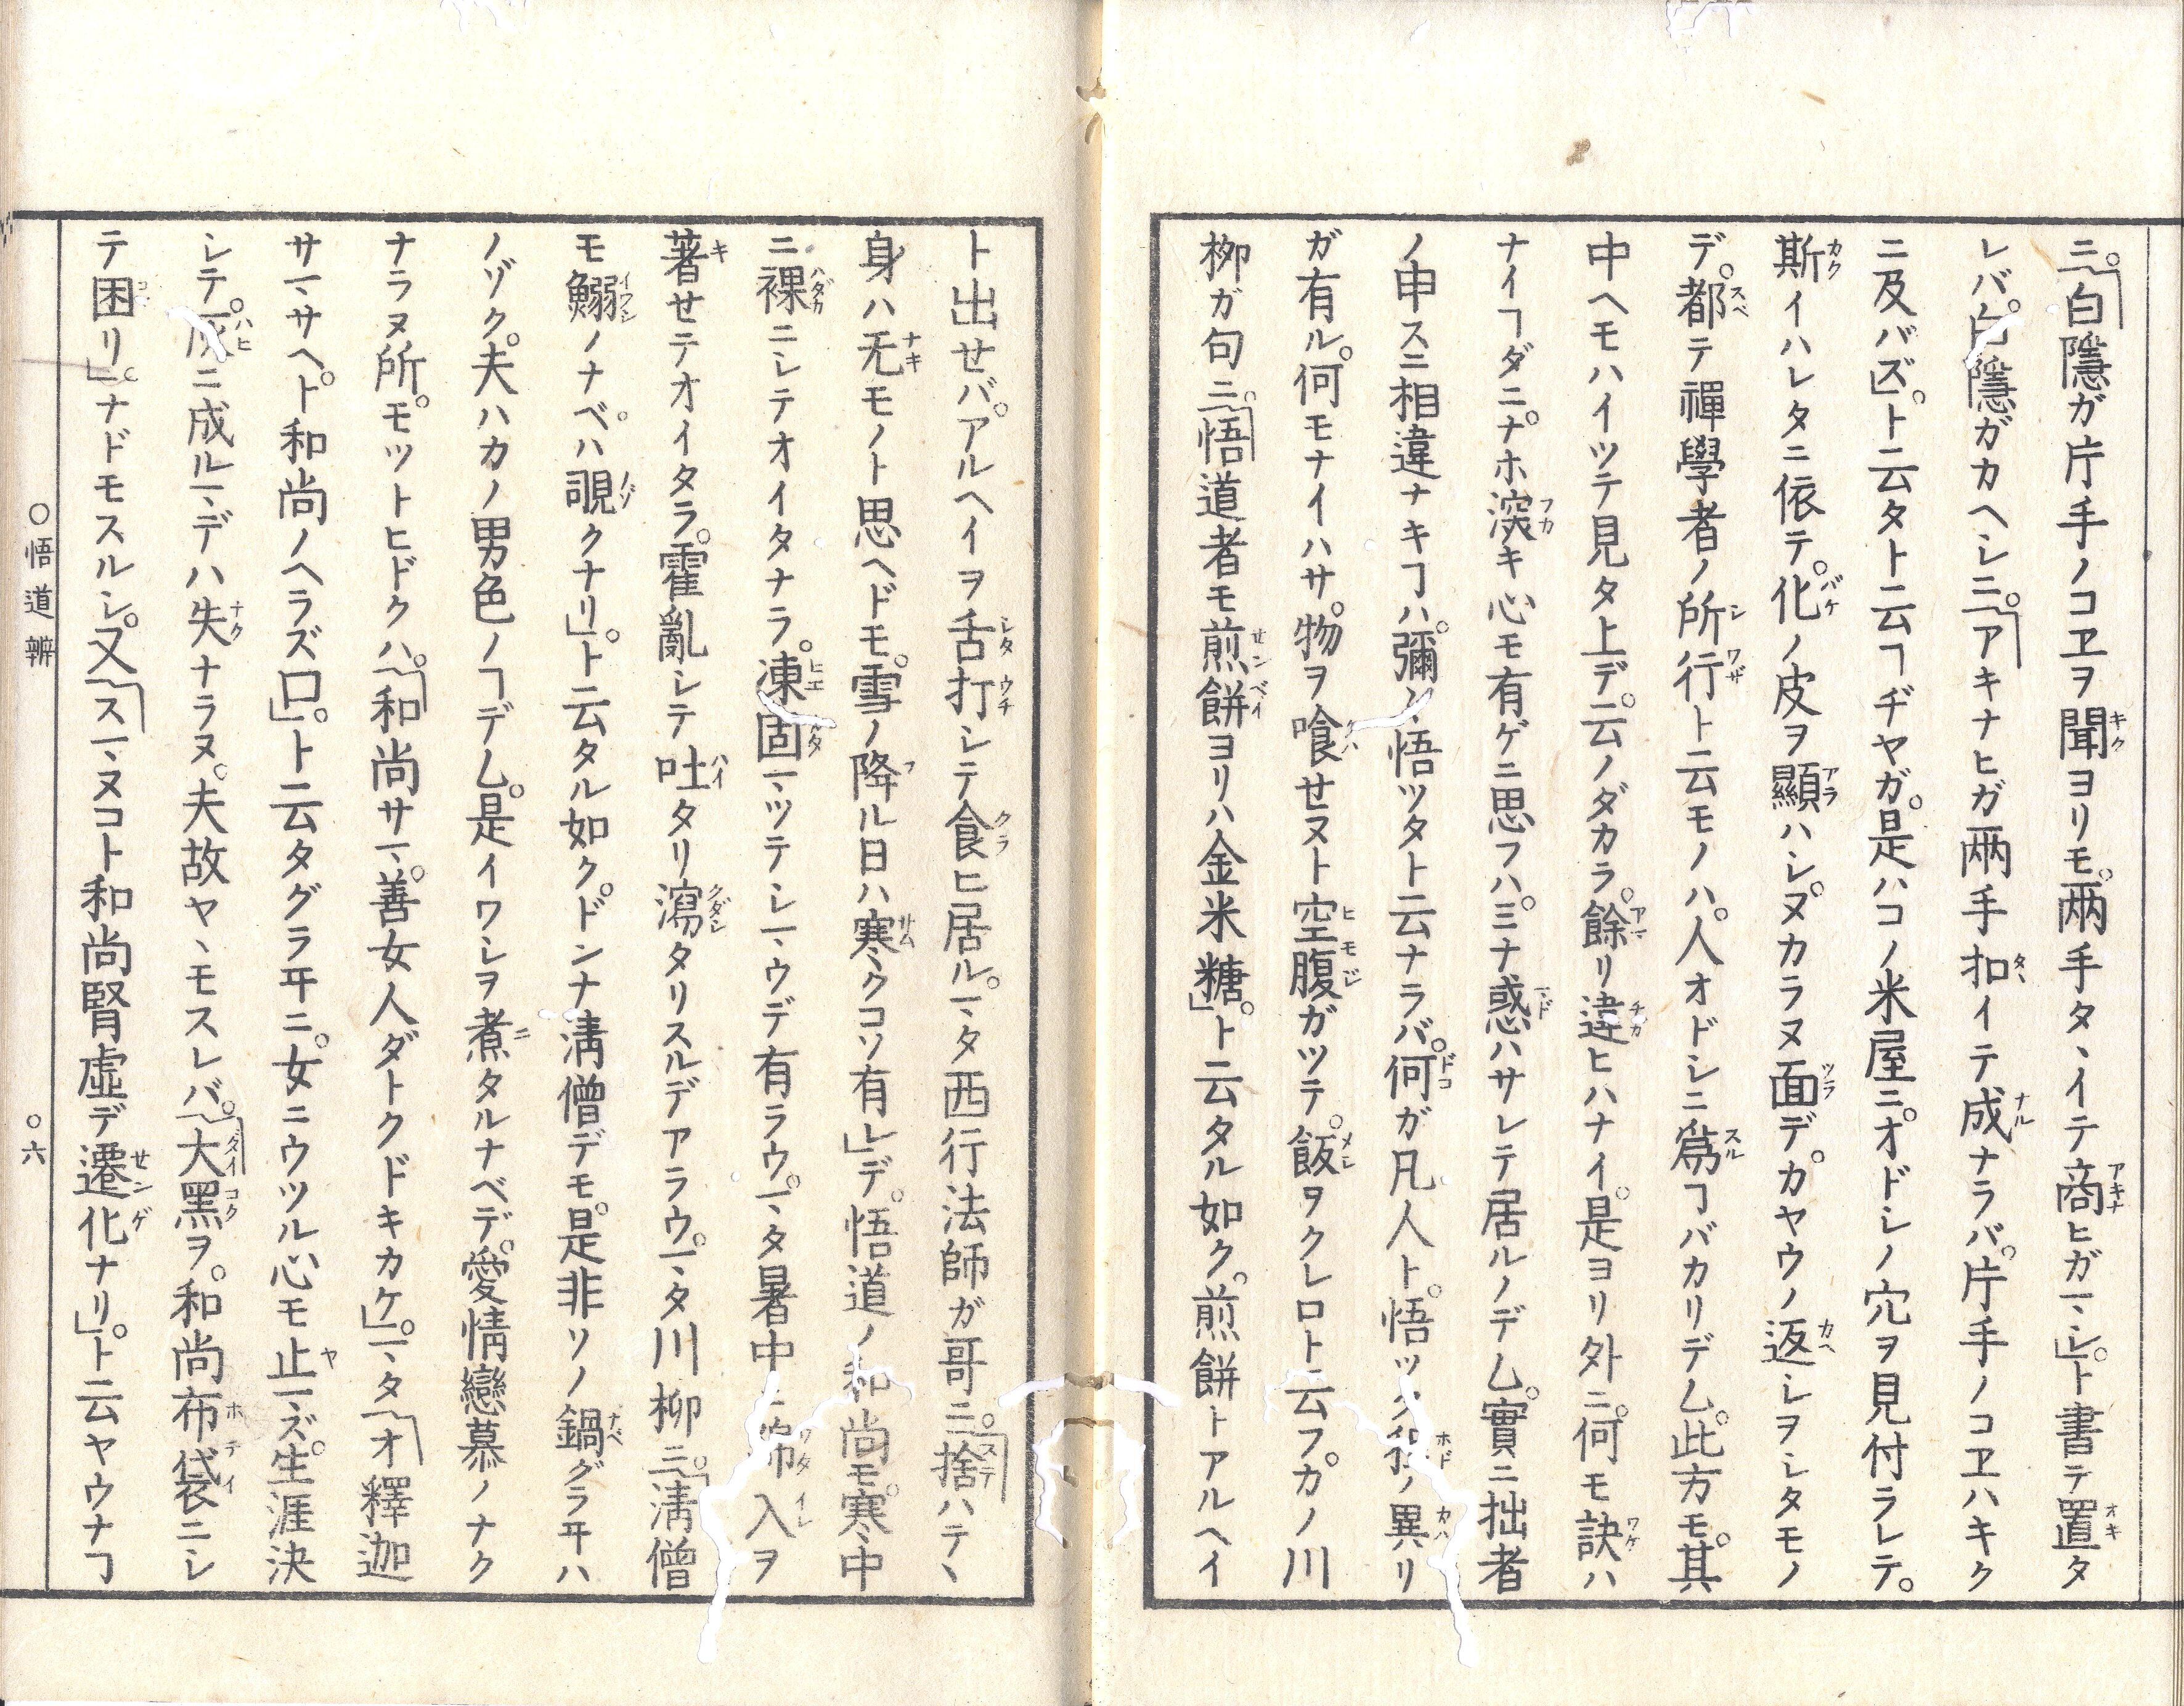 ニ。「白隱ガ片手ノコヱヲ聞ヨリモ。兩手タヽイテ商ヒガマシ」。ト書テ置タ
レバ。白隱ガカヘシニ。「アキナヒガ兩手扣イテ成ナラバ。片手ノコヱハキク
ニ及バズ」。ト云タト云ヿヂヤガ。是ハコノ米屋ニ。オドシノ穴ヲ見付ラレテ。
斯イハレタニ依テ。化ノ皮ヲ顯ハシ。ヌカラヌ面デ。カヤウノ返シヲシタモノ
デ。都テ禪學者ノ所行ト云モノハ。人オドシニ爲ヿバカリデム。此方モ。其
中ヘモハイツテ見タ上デ。云ノダカラ。餘リ違ヒハナイ。是ヨリ外ニ。何モ訣ハ
ナイヿダニ。ナホ深キ心モ有ゲニ思フハ。ミナ惑ハサレテ居ルノデム。實ニ拙者
ノ申スニ相違ナキヿハ。彌々悟ツタト云ナラバ。何ガ凡人ト。悟ツタ程ノ異リ
ガ有ル。何モナイハサ。物ヲ喰せヌト空腹ガツテ。飯ヲクレロト云フ。カノ川
柳ガ句ニ。「悟道者モ煎餅ヨリハ金米糖」。ト云タル如ク。煎餅トアルヘイ
ト出せバ。アルヘイヲ舌打シテ食ヒ居ル。マタ西行法師ガ哥ニ。「捨ハテヽ
身ハ无モノト思ヘドモ。雪ノ降ル日ハ寒クコソ有レ」デ。悟道ノ和尚モ。寒中
ニ裸ニシテオイタナラ。凍固マツテシマウデ有ラウ。マタ暑中ニ綿入ヲ
著せテオイタラ。霍亂シテ吐タリ瀉タリスルデアラウ。マタ川柳ニ。「淸僧
モ鰯ノナベハ覗クナリ」。ト云タル如ク。ドンナ淸僧デモ。是非ソノ鍋グラヰハ
ノゾク。夫ハカノ男色ノヿデム。是イワシヲ煮タルナベデ。愛情戀慕ノナク
ナラヌ所。モツトヒドクハ。「和尚サマ。善女人ダトクドキカケ」。マタ「オ釋迦
サマサヘ。ト和尚ノヘラズ口」。ト云タグラヰニ。女ニウツル心モ止マズ。生涯決
シテ。灰ニ成ルマデハ失ナラヌ。夫故ヤヽモスレバ。「大黑ヲ。和尚布袋ニシ
テ困リ」。ナドモスルシ。又「スマヌコト和尚腎虛デ遷化ナリ」。ト云ヤウナヿ
○悟道辨
○六